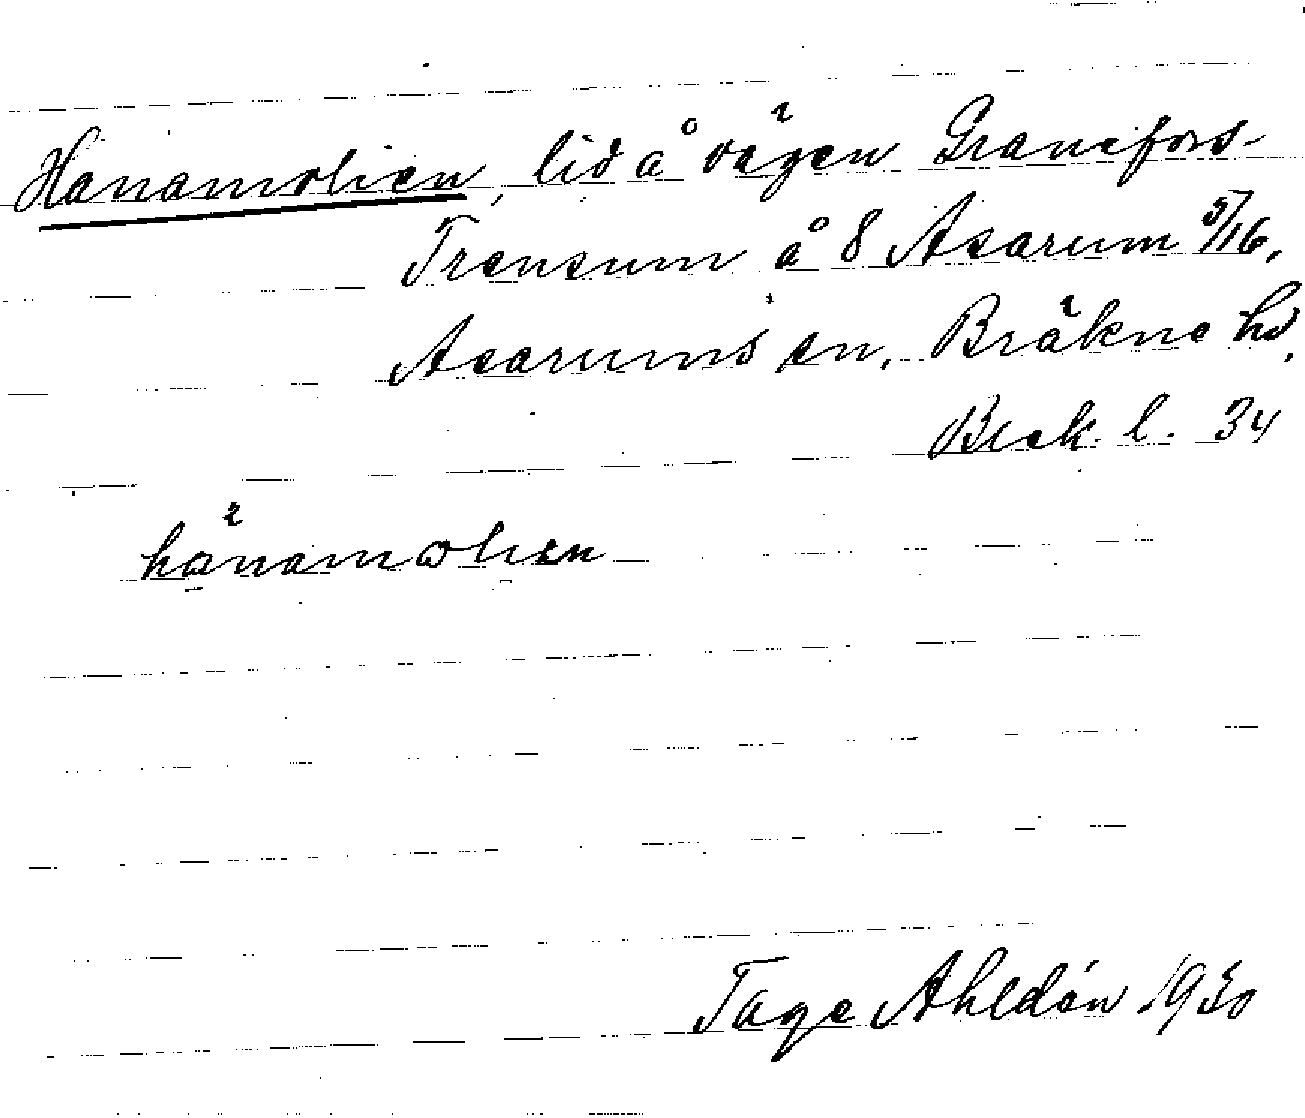 Hanamolien, lid å vägen Granefors-
Trensum å 8 Asarum 5/16,
Asarums sn, Bräkne hd,
Blek. l. 34
hanamolien
Tage Ahldén 1930